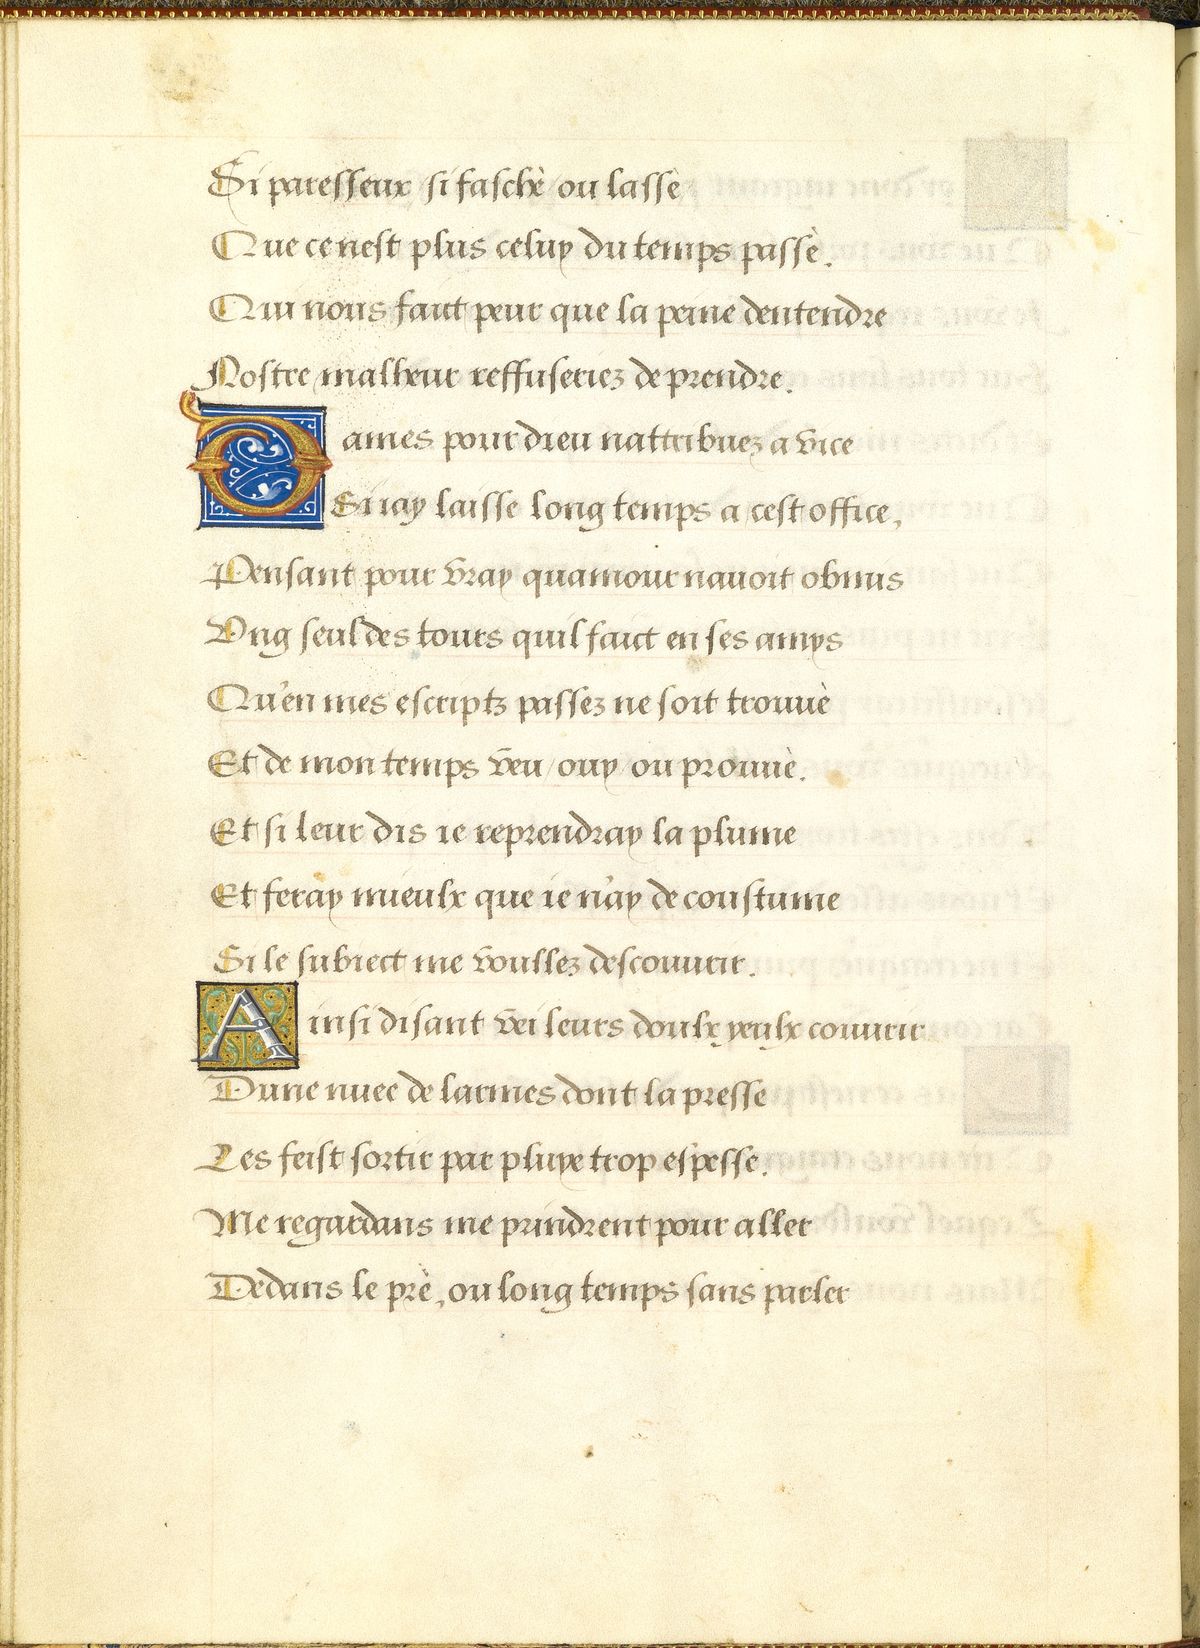 Si paresseux si faschè ou lassè
Que ce nest plus celuy du temps passè.
Qui nous faict peur que la peine dentendre
Nostre malheur reffuseriez de prendre.
Dames pour dieu nattribuez a vice
Si iay laisse long temps a cest office,
Pensant pour vray quamour nauoit obmis
Vng seul des tours quil faict en ses amys
Qu'en mes escriptz passez ne soit trouuè
Et de mon temps veu / ouy ou prouuè.
Et si leur dis ie reprendray la plume
Et feray mieulx que ie n'ay de coustume
Si le subiect me voullez descouurir.
Ainsi disant vei leurs doulx yeulx couurir
Dune nuee de larmes dont la presse
Les feist sortir par pluye trop espesse.
Me regardans me prindrent pour aller
Dedans le prè, ou long temps sans parler